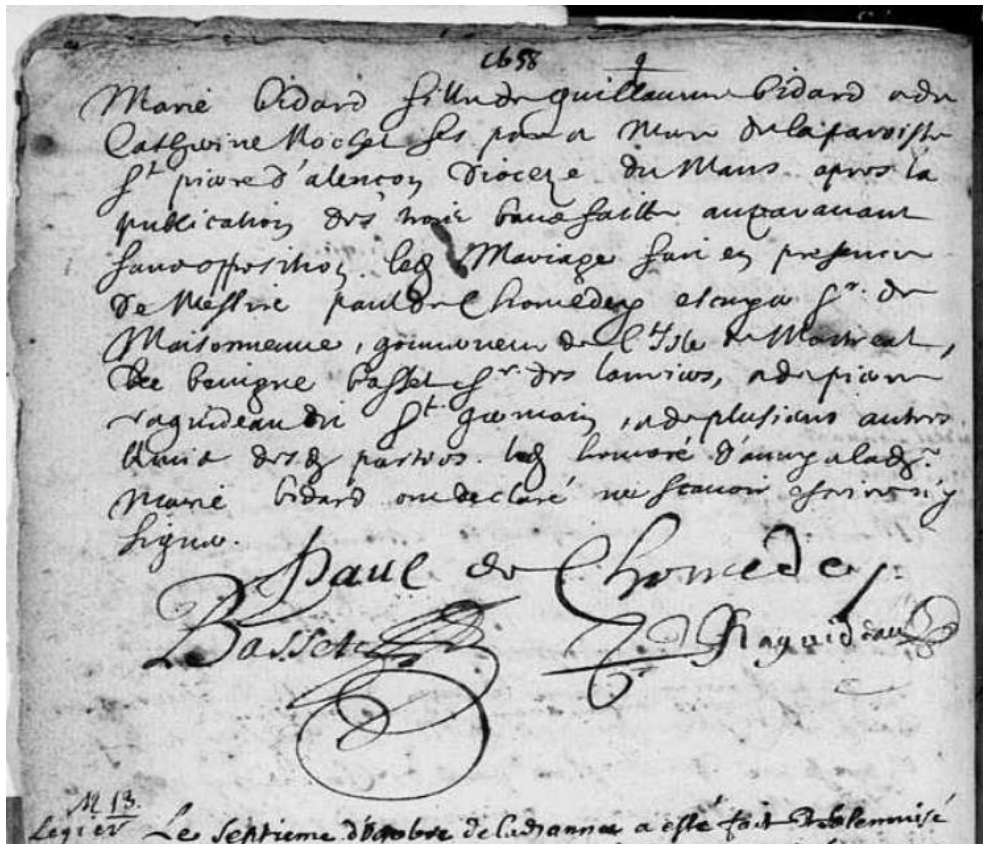 1658
9
Marie bidard fille de guillaume bidard & de
Catherine Nochet ses pere & Mere de la paroisse
St. pierre d'alençon Dioceze du Mans apres la
publication des trois bans faitte auparavant
sans opposition. led Mariage fait en presence
De Messire paul de Chomedey escuyer Sr. de
Maisonneuve, gouverneur de l'Isle de Montreal,
De benigne basset Sr. des lauriers, & de pierre
raguideau dit St. germain, & de plusieurs autres
amis desd parties. led honoré d'anny & lad.
Marie bidard ont declaré ne scavoir escrire n'y
signer.
Paul de Chomedey
Basset Raguideau
M 13.
Legier Le septieme d'octobre de lad annee a esté fait & solemnisé